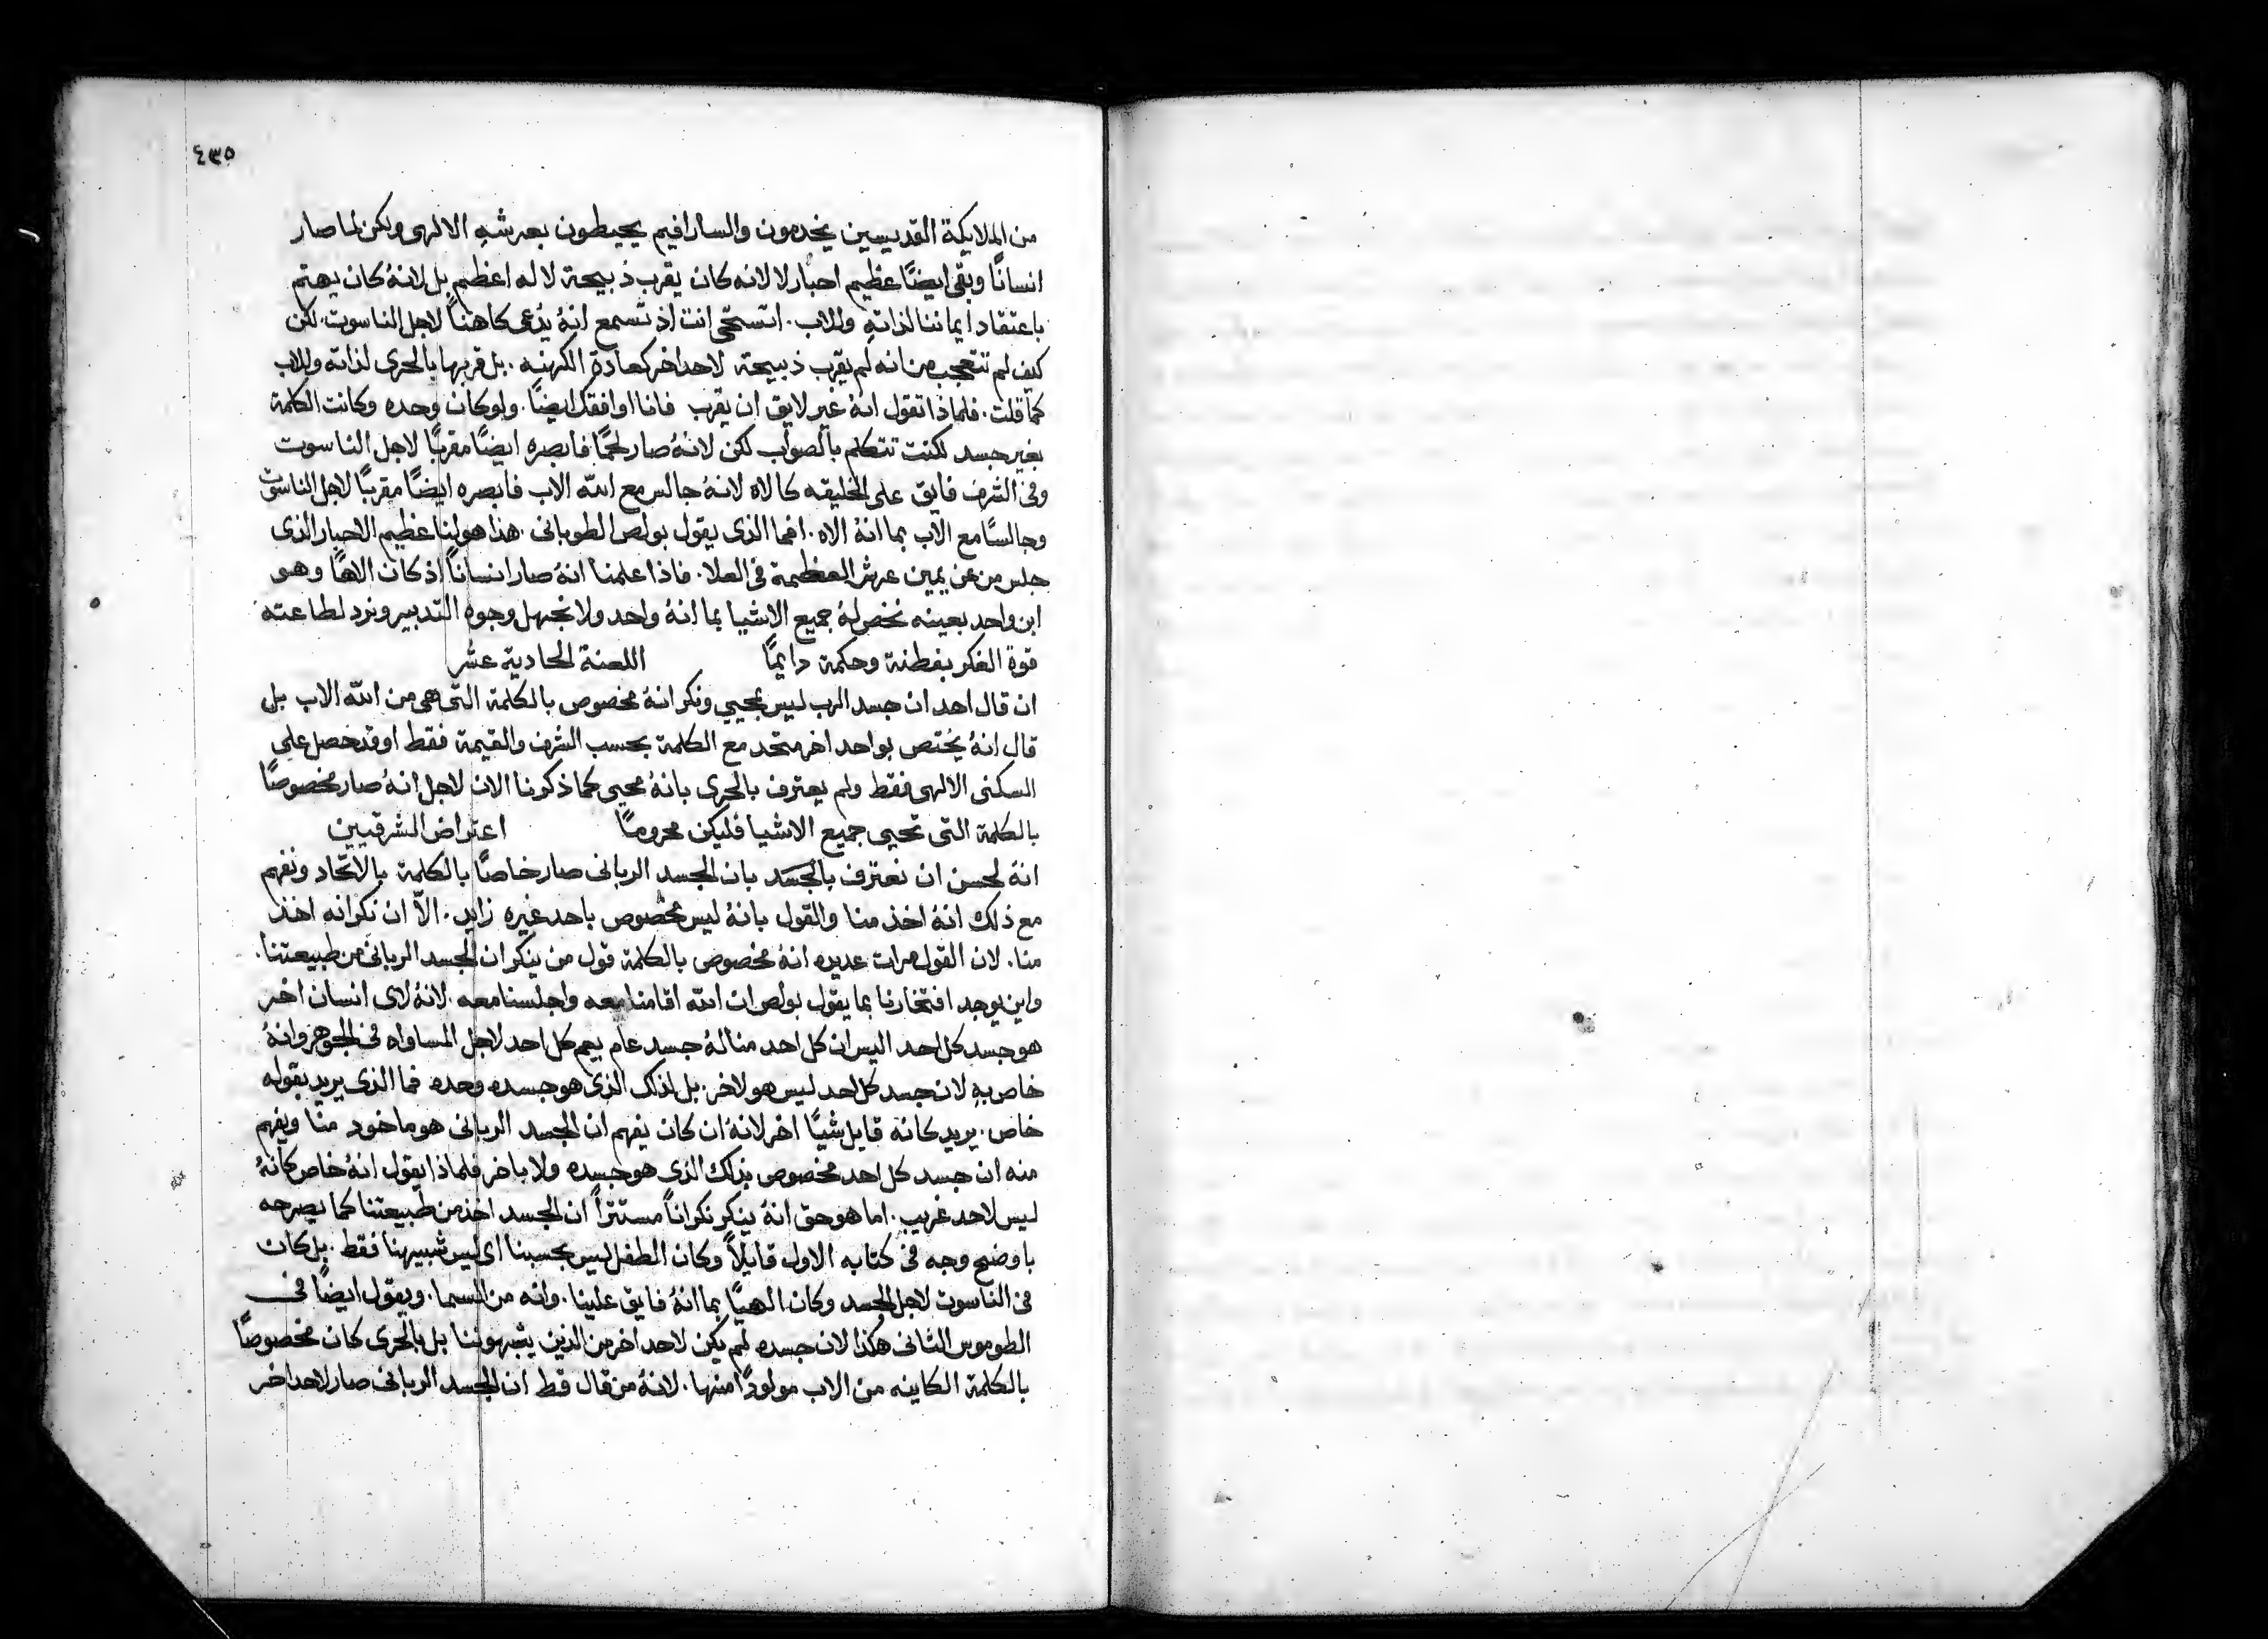 ٤٣٥
من الملايكة القديسين يخدمون والسارافيم يحيطون بعرشهِ الالهى ولكن لما صار
انسانًا وبقى ايضًا عظيم احبار لا لانه كان يقرب ذبيحة لاله اعظم بل لانهُ كان يهتم
باعتقاد ايماننا لذاتهِ وللاب. اتستحى انت اذ تسمع انهُ يُدعى كاهنًا لاجل الناسوت. لكن
كيف لم تتعجب من انه لم يقرب ذبيحة لاحد اخر كعادة الكهنه. بل قربها بالحرى لذاته وللاب
كما قلت. فلماذا تقول انهُ غير لايق ان يقرب فانا اوافقك ايضًا. ولو كان وحده وكانت الكلمة
بغير جسد لكنت تتكلم بالصواب لكن لانهُ صار لحمًا فابصره ايضًا مقربًا لاجل الناسوت
وفى الشرف فايق على الخليقه كالاه لانهُ جالس مع الله الاب فابصره ايضًا مقربًا لاجل الناسوت
وجالسًا مع الاب بما انهُ الاه. افما الذى يقول بولص الطوبانى. هذا هو لنا عظيم الاحبار الذى
جلس من عن يمين عرش العظمة فى العلا. فاذا علمنا انهُ صار انسانًا اذ كان الاهًا وهو
ابن واحد بعينه نخص لهُ جميع الاشيا بما انهُ واحد ولا نجهل وجوه التدبير ونرد لطاعته
قوة الفكر بفطنة وحكمة دايمًا اللعنة الحادية عشر
ان قال احد ان جسد الرب ليس بمحيي ونكر انهُ مخصوص بالكلمة التى هى من الله الاب بل
قال انهُ يُختص بواحد اخر متحد مع الكلمة بحسب الشرف والقيمة فقط او قد حصل على
السكنى الالهى فقط ولم يعترف بالحرى بانهُ محيى كما ذكرنا الان لاجل انهُ صار مخصوصًا
بالكلمة التى تحيى جميع الاشيا فليكن محرومًا اعتراض الشرقيين
انهُ لحسن ان نعترف بالجسد بان الجسد الربانى صار خاصًا بالكلمة بالاتحاد ونفهم
مع ذلك انهُ اخذ منا والقول بانهُ ليس مخصوص باحد غيره زايد. الّا ان نكر انه اخذ
منا. لان القول مرات عديده انهُ مخصوص بالكلمة قول من ينكر ان الجسد الربانى من طبيعتنا.
واين يوجد افتخارنا بما يقول بولص ان الله اقامنا معه واجلسنا معه. لانهُ لاى انسان اخر
هو جسد كل احد اليس ان كل احد منا لهُ جسد عام يعم كل احد لاجل المساواه فى الجوهر وانهُ
خاص بهِ لان جسد كل احد ليس هو لاخر. بل لذلك الذى هو جسده وحده فما الذى يريد بقوله
خاص. يريد كانه قايل شيًا اخر لانهُ ان كان يفهم ان الجسد الربانى هو ماخود منا ويفهم
منه ان جسد كل احد مخصوص بذلك الذى هو جسده ولا باخر فلماذا يقول انهُ خاص كانهُ
ليس لاحد غريب. اما هو حق انهُ ينكر نكرانًا مستترًا ان الجسد اخذ من طبيعتنا كما يصرحه
باوضح وجه فى كتابه الاول قايلًا وكان الطفل ليس بحسبنا اى ليس شبيهنا فقط. بل كان
فى الناسوت لاجل الجسد وكان الهيًا بما انهُ فايق علينا. وانه من السما. ويقول ايضًا فى
الطوموس الثانى هكذا لان جسده لم يكن لاحد اخر من الذين يشبهوننا بل بالحرى كان مخصوصًا
بالكلمة الكاينه من الاب مولودًا منها. لانهُ من قال قط ان الجسد الربانى صار لاحد اخر